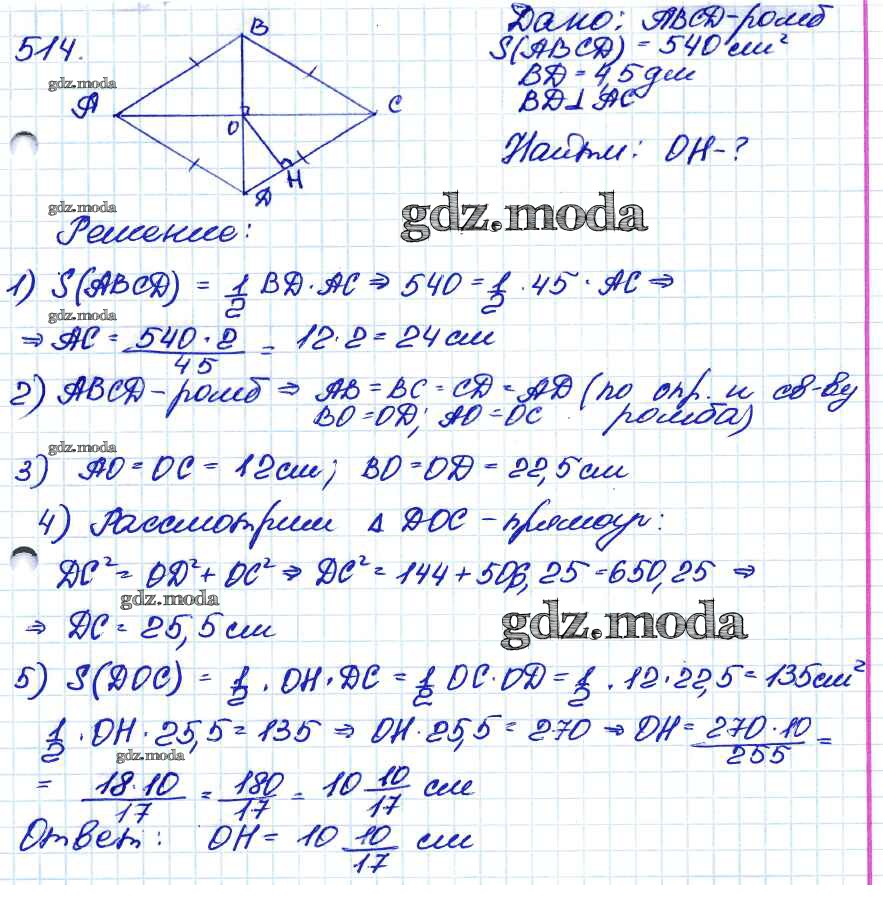 514.
Дано: ABCD-ромб
S(ABCD) = 540 см²
BD = 4,5 дм
BD⊥AC
Найти: OH-?
gdz.moda
B
A
C
O
H
D
gdz.moda
gdz.moda
Решение:
1) S(ABCD) = 1/2 BD·AC ⇒ 540 = 1/2 · 45 · AC ⇒
gdz.moda
⇒ AC = 540·2/45 = 12·2 = 24 см
2) ABCD-ромб ⇒ AB = BC = CD = AD (по опр. и св-ву
BO=OD; AO=OC ромба)
gdz.moda
3) AO = OC = 12 см; BO = OD = 22,5 см
4) Рассмотрим Δ DOC - прямоуг:
DC² = OD² + OC² ⇒ DC² = 144 + 506,25 = 650,25 ⇒
gdz.moda
gdz.moda
⇒ DC = 25,5 см
5) S(DOC) = 1/2 · OH · DC = 1/2 OC·OD = 1/2 · 12·22,5 = 135 см²
1/2 · OH · 25,5 = 135 ⇒ OH · 25,5 = 270 ⇒ OH = 270·10/255 =
gdz.moda
= 18·10/17 = 180/17 = 10 10/17 см
Ответ: OH = 10 10/17 см